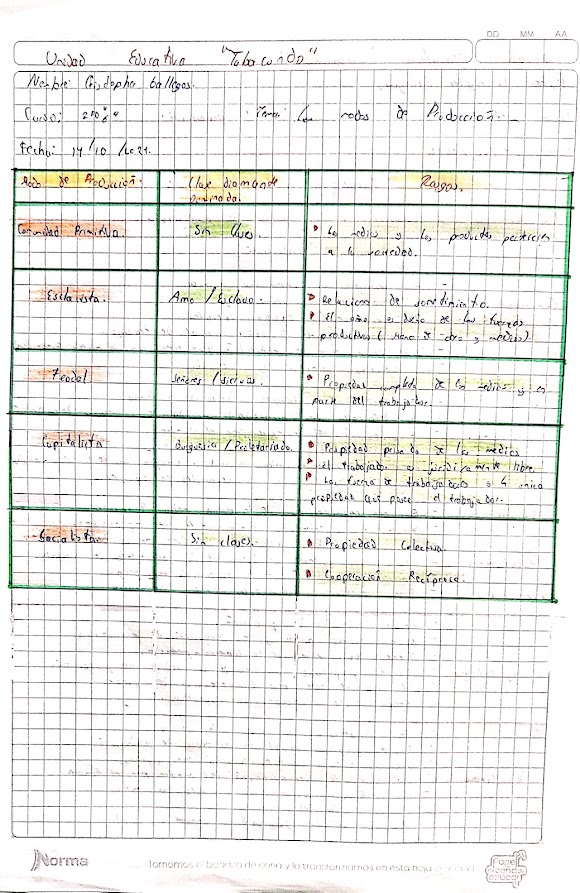 DD MM AA
Unidad Educativa "Tabacundo"
Nombre: Cristopher Gallegos.
Curso: 2do
Tema: Los modos de Producción.
Fecha: 14/10/2021.
Modo de Producción.
Clase
Rasgos.
Comunidad Primitiva
Sin Clases.
Los medios y los productos pertenecen
a la sociedad.
Esclavista.
Amo / Esclavo.
Relaciones de sometimiento.
El amo es dueño de las fuerzas
productivas (mano de obra y medios)
Feudal
Señores / siervos.
Propiedad completa de los medios y en
parte del trabajador.
Capitalista
Burguesia / Proletariado.
Propiedad privada de los medios
el trabajador es juridicamente libre.
La fuerza de trabajo es la unica
propiedad que posee el trabajador.
Socialista.
Sin clases.
Propiedad Colectiva.
Cooperación Recíproca.
Norma
Tomamos el bagazo de caña y lo transformamos en esta hoja